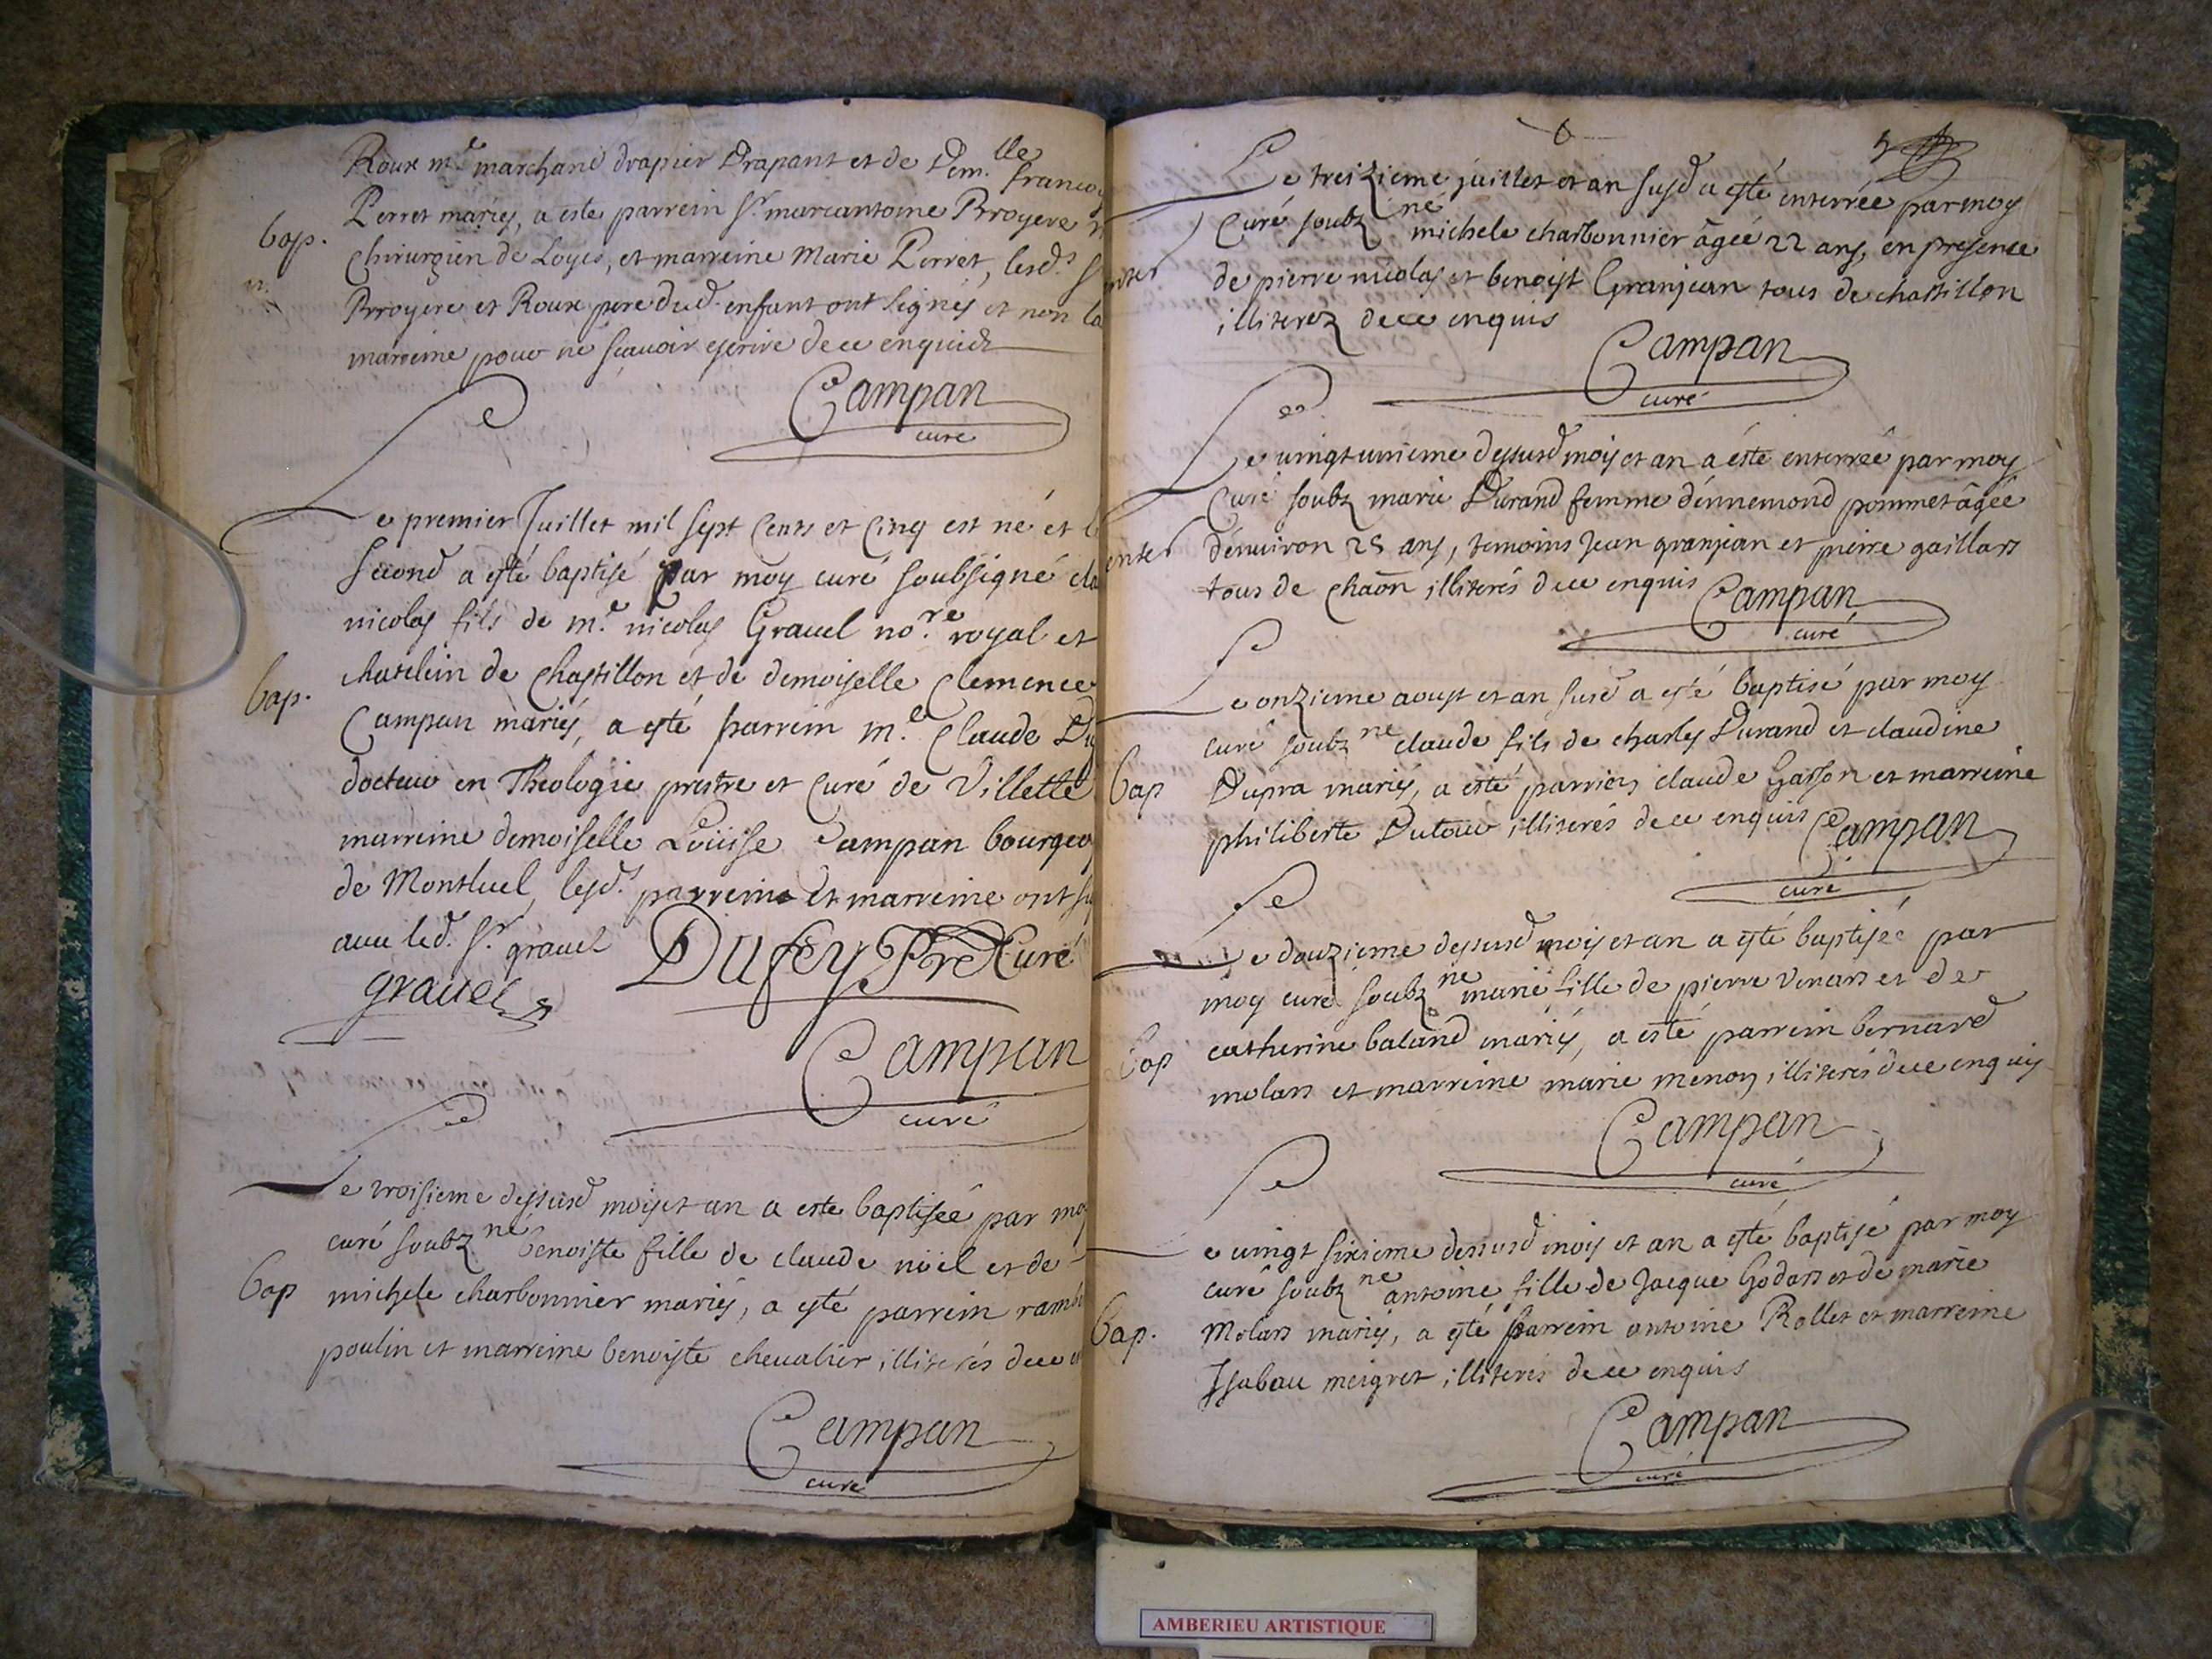 Roux m.e marchand drapier Drapant et de Dem.lle francoi
Perret mariés, a este parrein S.r marcantoine Brroyere
bap.
Chirurgien de Loyes, et marreine Marie Perret, lesd.s
Brroyere et Roux pere dud. enfant ont signés et non la
marreine pour ne sçauoir escrire de ce enquise
Campan
curé
Le premier Juillet mil sept cents et cinq est né et le
second a esté baptisé par moy curé soubsigné cla
nicolas fils de m.e nicolas Grauel no.re royal et
chatelein de chastillon et de demoiselle Clemence
bap.
Campan mariés, a esté parrein m.e Claude Du
docteur en Theologie prestre et curé de Villette
marreine demoiselle Loüise Campan bourgeo
de Montluel, lesd.s parrein et marreine ont si
auec led. S.r grauel
grauel
Dufey Pre Curé
Campan
curé
Le troisieme dessusd mois et an a este baptisée par mo
curé soubz né benoiste fille de claude noël et de
bap
michele charbonnier mariés, a esté parrein ramb
poulin et marreine benoiste cheualier illiterés de ce e
Campan
curé
Le treizieme juillet et an susd a esté enterrée par moy
curé soubz né michele charbonnier âgée 22 ans, en presence
enter
de pierre nicolas et benoist Granjean tous de chastillon
illiterez de ce enquis
Campan
curé
Le uingt unieme dessusd mois et an a este enterrée par moy
curé soubz marie Durand femme d'ennemond pommet âgée
enter
d'enuiron 25 ans, temoins Jean granjean et pierre gaillard
tous de chaôn illiterés de ce enquis
Campan
curé
Le onzieme aoust et an susd a esté baptisé par moy
curé soubz né claude fils de charles Durand et claudine
bap
Dupra mariés, a esté parrein claude Gasson et marreine
philiberte Dutour illiterés de ce enquis
Campan
curé
Le douzieme dessusd mois et an a esté baptisée par
moy curé soubz né marie fille de pierre Venard et de
bap
catherine baland mariés, a esté parrein bernard
molard et marreine marie menon illiterés de ce enquis
Campan
curé
Le uingt sixieme dessusd mois et an a esté baptisé par moy
curé soubz né antoine fille de Jacque Godard et de marie
bap.
Molard mariés, a esté parrein antoine Rollet et marreine
Isabau meigret illiterés de ce enquis
Campan
curé
AMBERIEU ARTISTIQUE